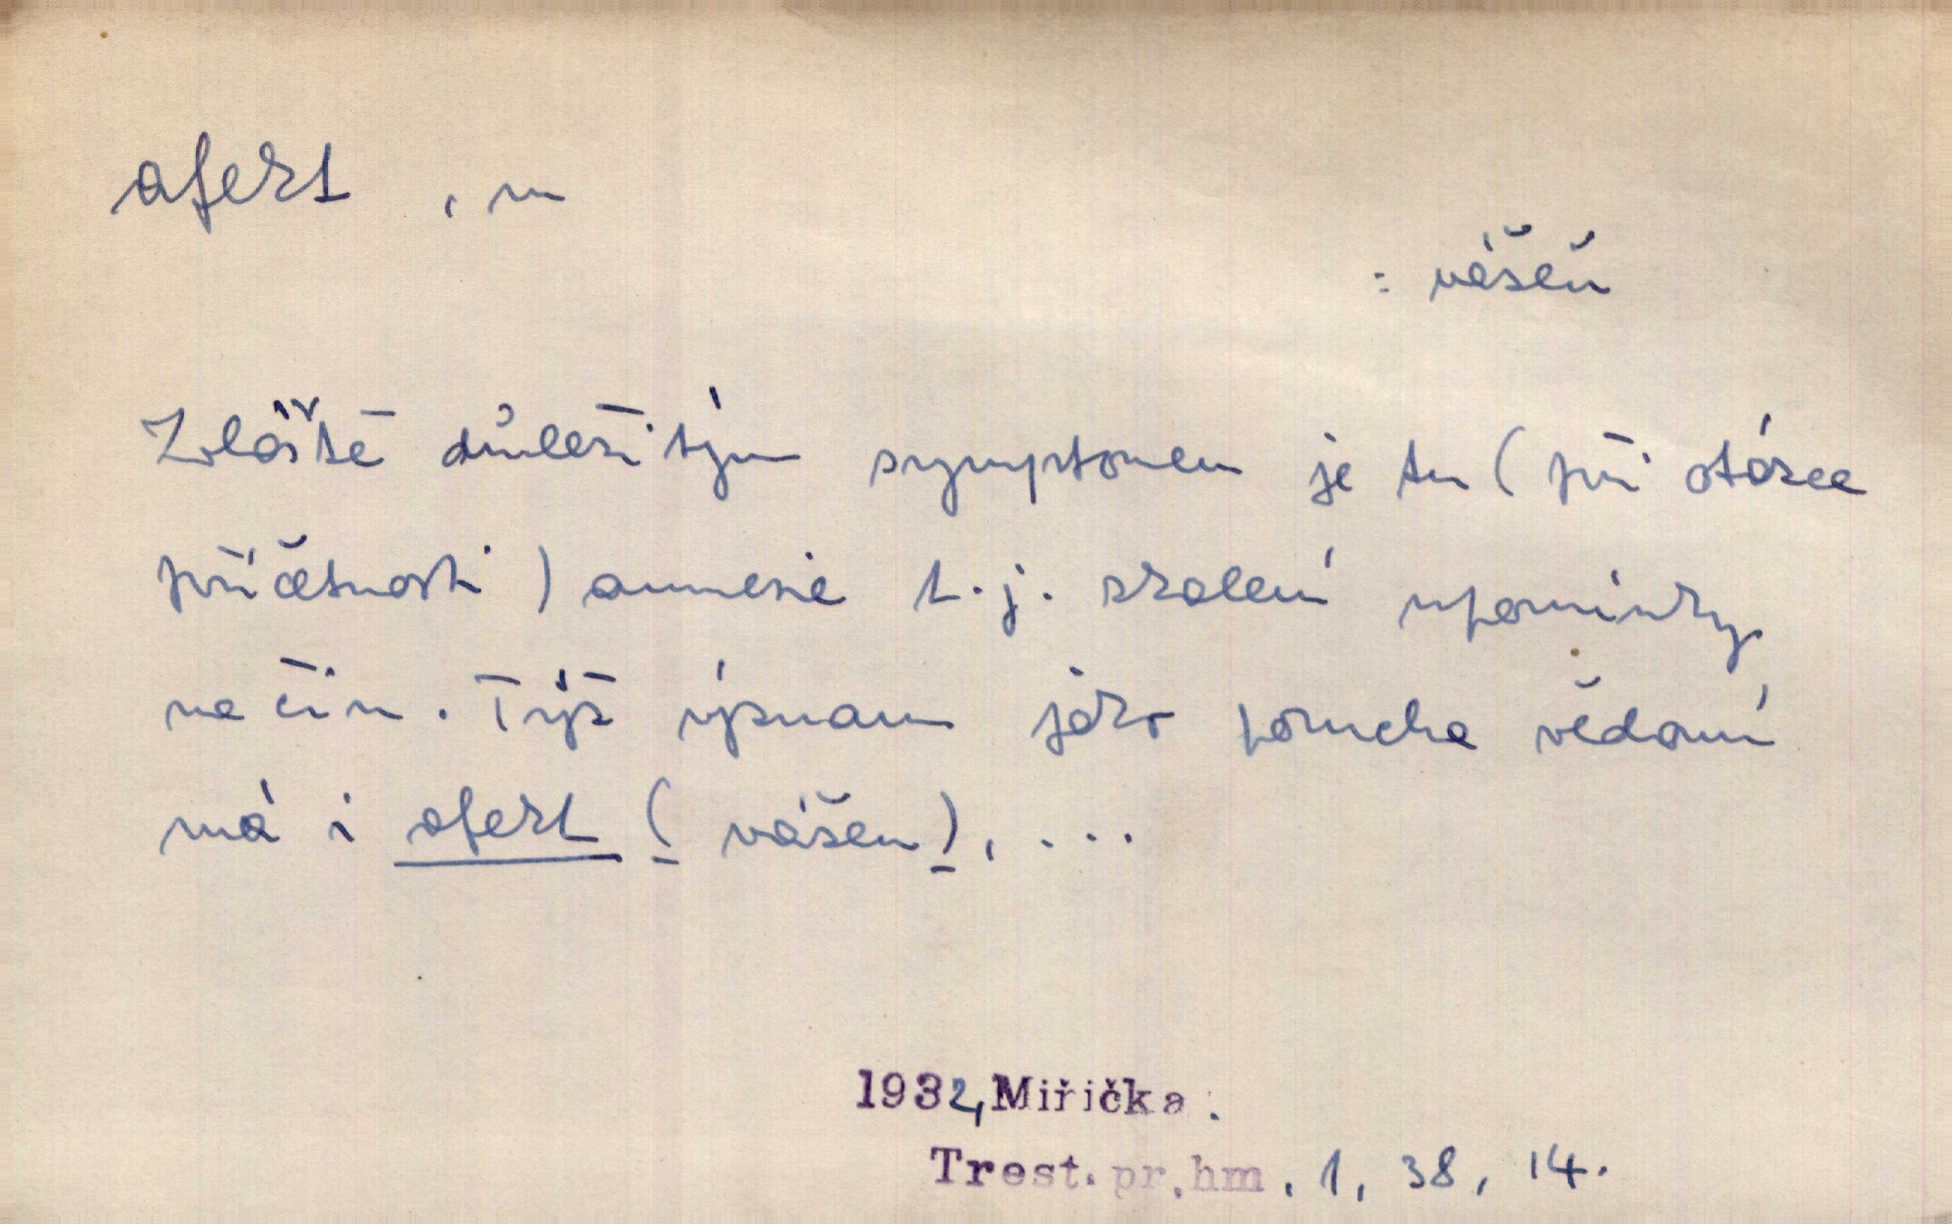 afekt, m
: vášeň
Zvláště důležitým symptomem je tu (při otázce
příčetnosti) amnesie t. j. zkalení upomínky
na čin. Týž význam jako porucha vědomí
má i afekt (vášeň), ...
1932, Miřička.
Trest. pr. hm, 1, 38, 14.